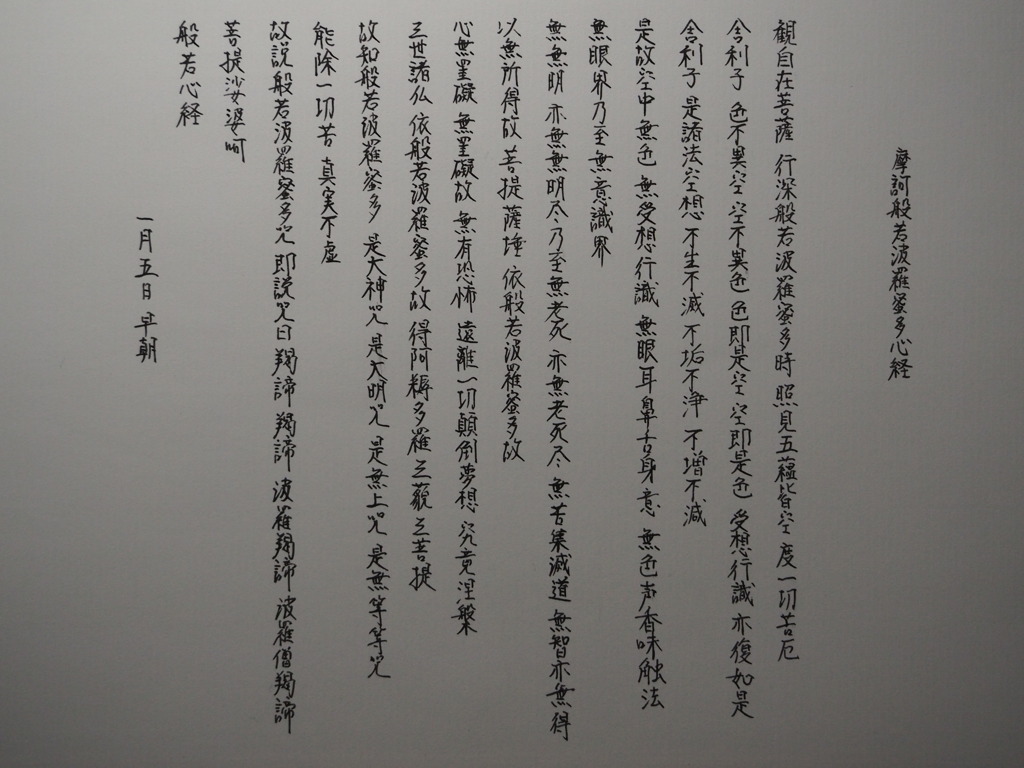 摩訶般若波羅蜜多心経
観自在菩薩 行深般若波羅蜜多時 照見五蘊皆空 度一切苦厄
舎利子 色不異空 空不異色 色即是空 空即是色 受想行識 亦復如是
舎利子 是諸法空想 不生不滅 不垢不浄 不増不減
是故空中 無色 無受想行識 無眼耳鼻舌身意 無色声香味触法
無眼界乃至無意識界
無無明 亦無無明尽乃至無老死 亦無老死尽 無苦集滅道 無智亦無得
以無所得故 菩提薩埵 依般若波羅蜜多故
心無罣礙 無罣礙故 無有恐怖 遠離一切顛倒夢想 究竟涅槃
三世諸仏 依般若波羅蜜多故 得阿耨多羅三藐三菩提
故知般若波羅蜜多 是大神咒 是大明咒 是無上咒 是無等等咒
能除一切苦 真実不虚
故説般若波羅蜜多咒 即説咒曰 羯諦 羯諦 波羅羯諦 波羅僧羯諦
菩提沙婆呵
般若心経
一月五日 早朝